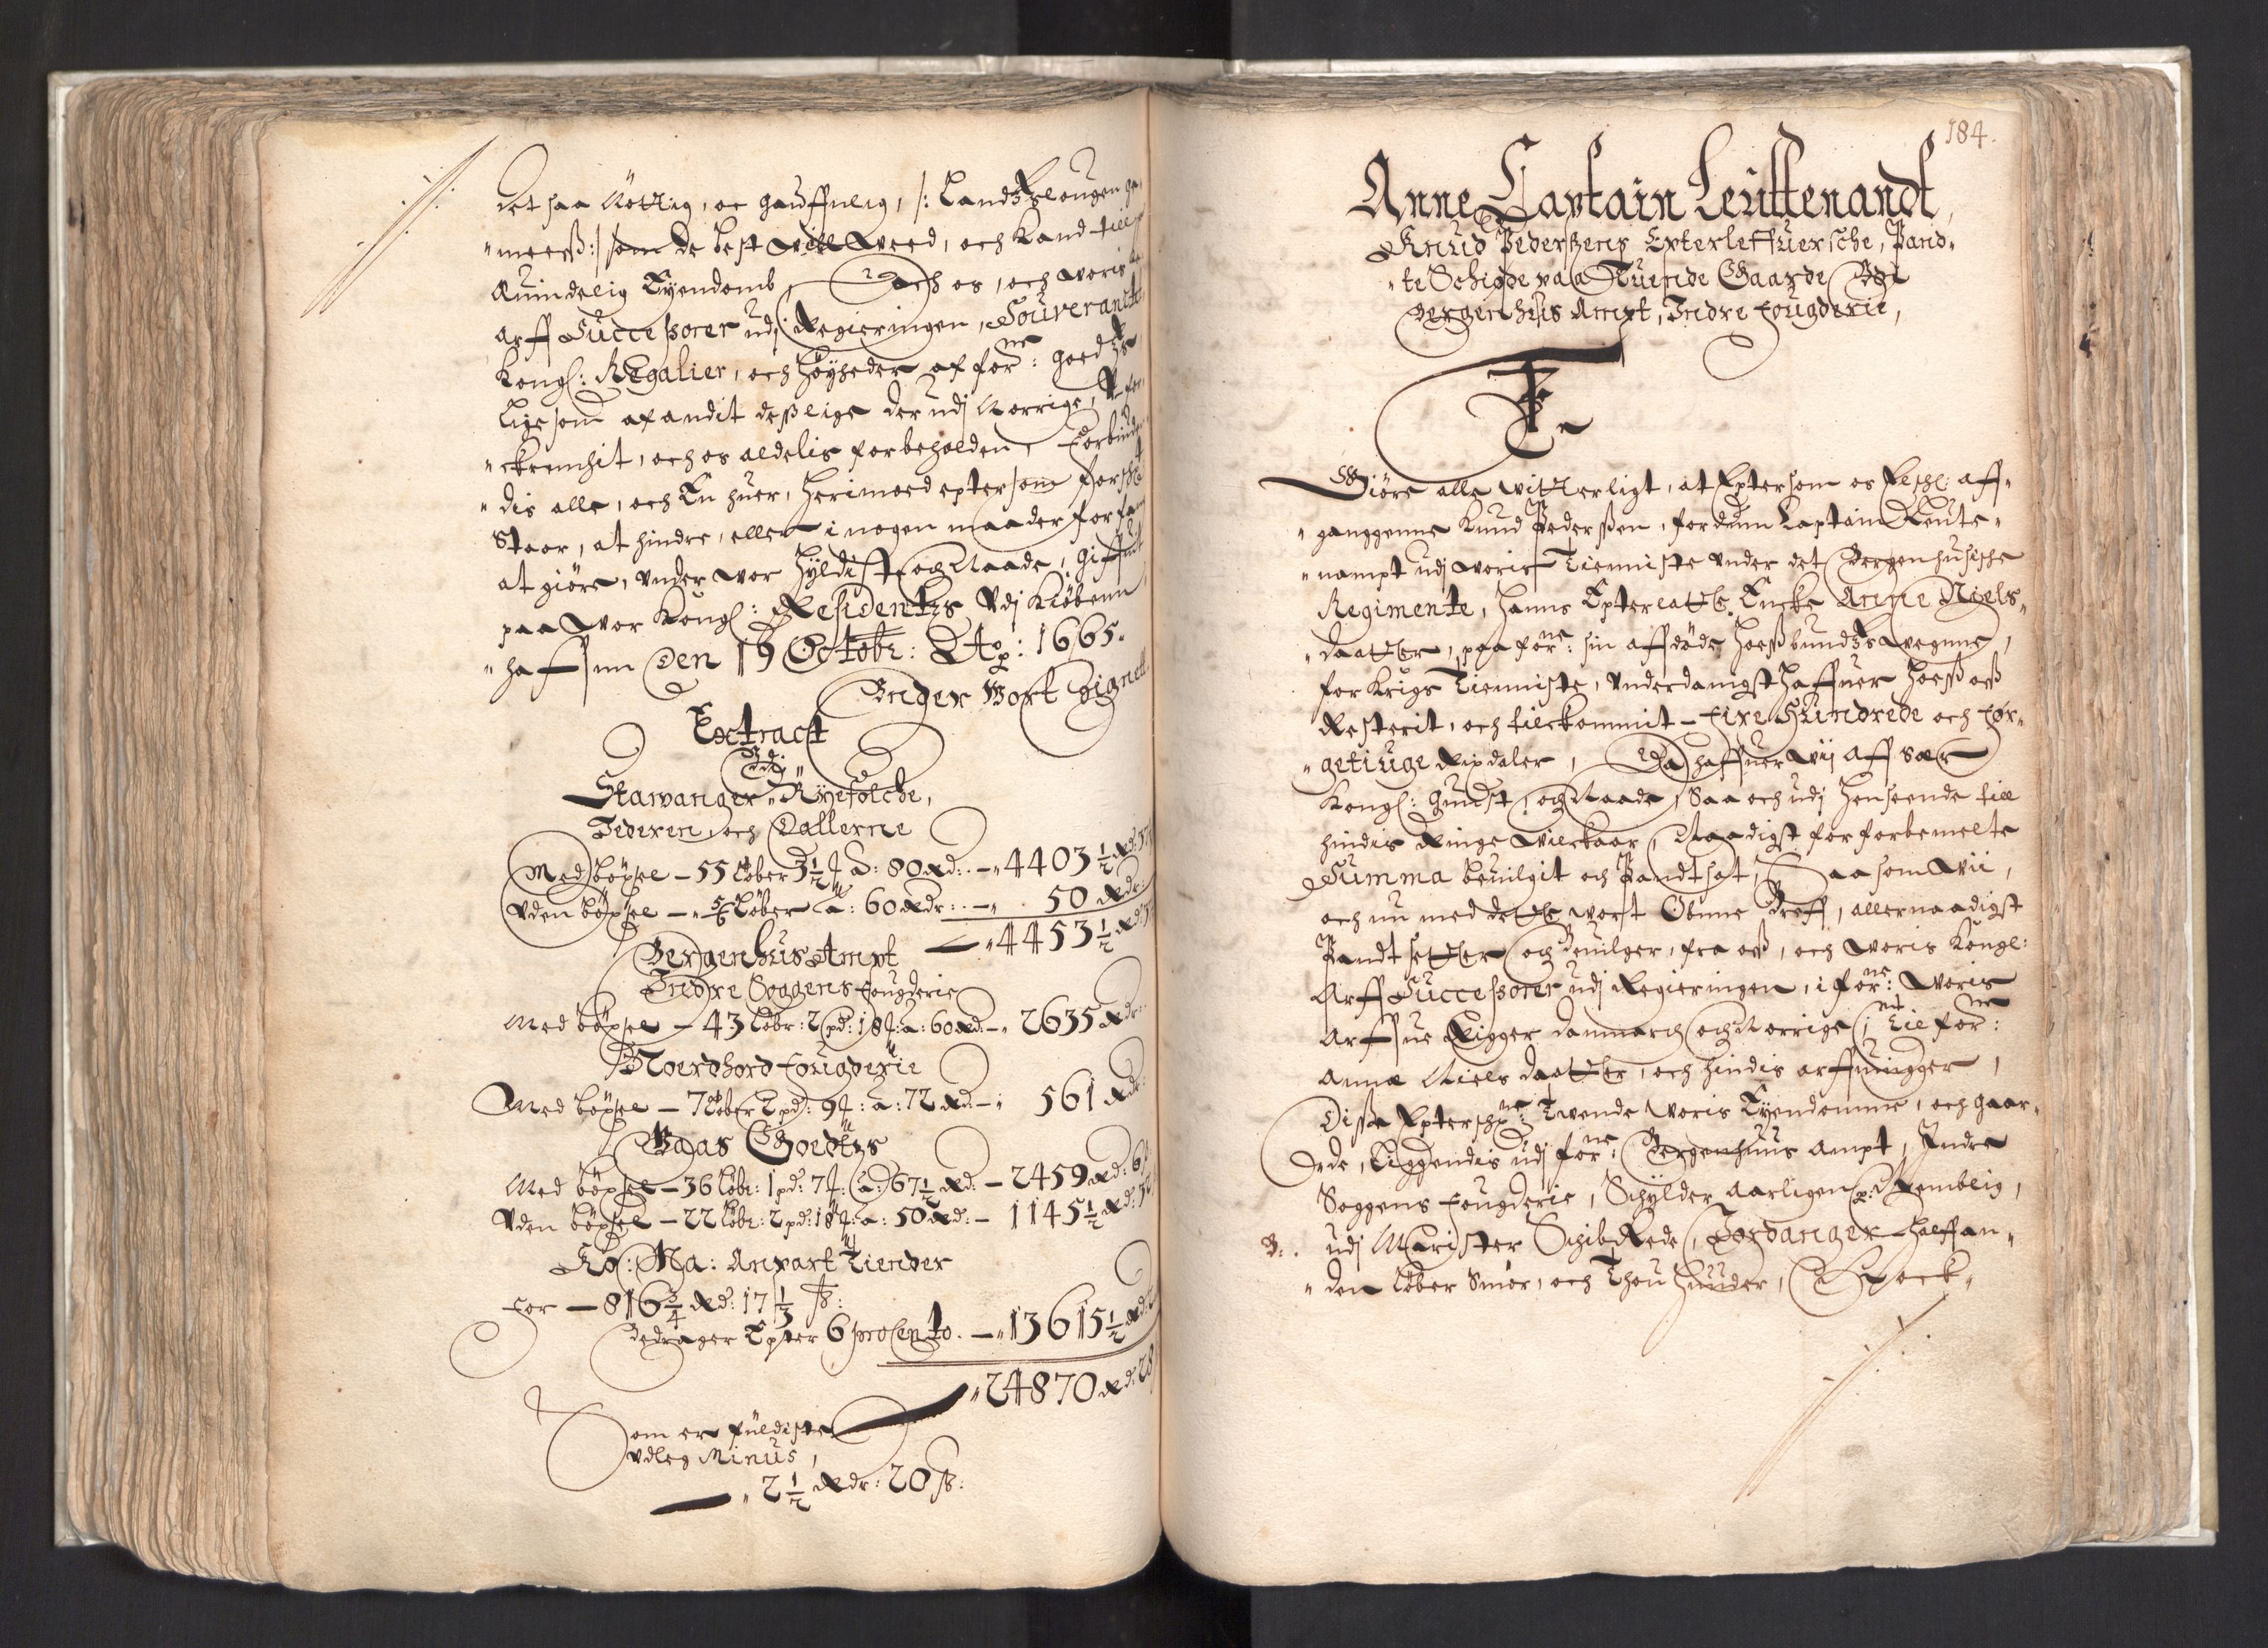 det saa Nöttig, oc gauffnlig, /: Landtzlougen ge,
"meess:/ som de best vill Veed, och Kand till
Quindelig Eyendomb, Doch os, och Voris
arff Successorer udj Regieringen, Souveranitet
Kongl: Regalier, och Höyheder af forne: goedtz
Lige som af andit desslige der udj Norrige, Vfor
"ckrenchit, och os aldelis forbeholden, Forbiud
"dis alle, och En huer, herimoed epter som forschr
Staar, at hindre, eller i nogen maader forfang
at giöre, Vnder Vor Hyldist och Naade, Giffuit
paa Vor Kongl: Residentz Vdj Kiöbenn
"haffun Den 19 Octobr: Ao: 1665.
Vnder Vort Signett
Extract
Vdj
Stavanger, Ryefölche,
Jederen, och Dallerne
Med böxsel – 55 Löber 3½ ℔ a: 80 Rd: – 4403½ Rd:
Vden böxsel – ⅚ Löber a: 60 Rdr: – 50 Rdr:
– 4453½ Rd:
Bergenhus Ampt
Indre Soggens Fougderie
Med böxsel – 43 Löbr: 2 pd: 18 ℔: a: 60 Rd: – 2635 Rdr:
Noerdhord Fougderie
Med böxsel – 7 Löber 2 pd: 9 ℔: a: 72 Rd: – 561 Rdr:
Vaas Goedtzs
Med böxsel – 36 Löbr: 1 pd: 7 ℔: a: 67½ Rd: – 2459 Rd: 6
Vden böxsel – 22 Löbr: 2 pd: 18 ℔: a: 50 Rd: – 1145½ Rd:
Ko: Ma: Anpart Tiender
For – 816¾ Rd: 17⅓ ß:
Bedrager Epter 6 pro Cento. – 13615½ Rd:
24870 Rd: 28
Som er fuldiste
Vdleg Minus,
– 2½ Rdr: 20 ß:
184.
Anne Captain Leuttenandt,
Knud Pederszens Epterleffuersche, Pand-
"te Schiøde paa Tuende Gaarde Vdi
Bergenhuss Ampt, Indre Fougderie,
F 3
Giöre alle Vitterligt, at Eptersom os Elschl: aff-
"ganggenne Knud Pederssen, fordum Captain Leute-
"nampt udj Voris Tienniste Vnder det Bergenhusische
Regimente, hanns Epterlatte Encke Anne Niels-
"daatter, paa forne: sin affdöde Hoessbundtz Vegnne,
for Krigs Tienniste, Vnderdanigst Haffuer hoess oss
Resterit, och tilekommit – Fire Hundrede och För-
"getiuge Rixdaler, Da haffuer Vij aff Sær
Kongl: Gunst, och Naade, Saa och udj Henseende till
hindis Ringe Vilckaar, Naadigst for forbemelte
Summa beuilgit och Pandtsat, Saa som Vii,
och nu med dette Vort Obnne Breff, allernaadigst
Pandtsetter och Beuilger, fra oss, och Voris Kongl:
Arff Successorer udj Regieringen, i forne: Voris
Arffue Riger Danmarch och Norrige, Til forne:
Anne Niels daatter, och hindis arffuingger,
Disse Epterschrne: Tvende Voris Eyendomme, och gaar-
"de, Liggendis udj forne: Bergenhuus Ampt, Indre
Soggens Fougderie, Schylder Aarligen
B. udj Marister Schib Rede, Jordanger halff an-
"den Löber Smör, och Thou Huuder,